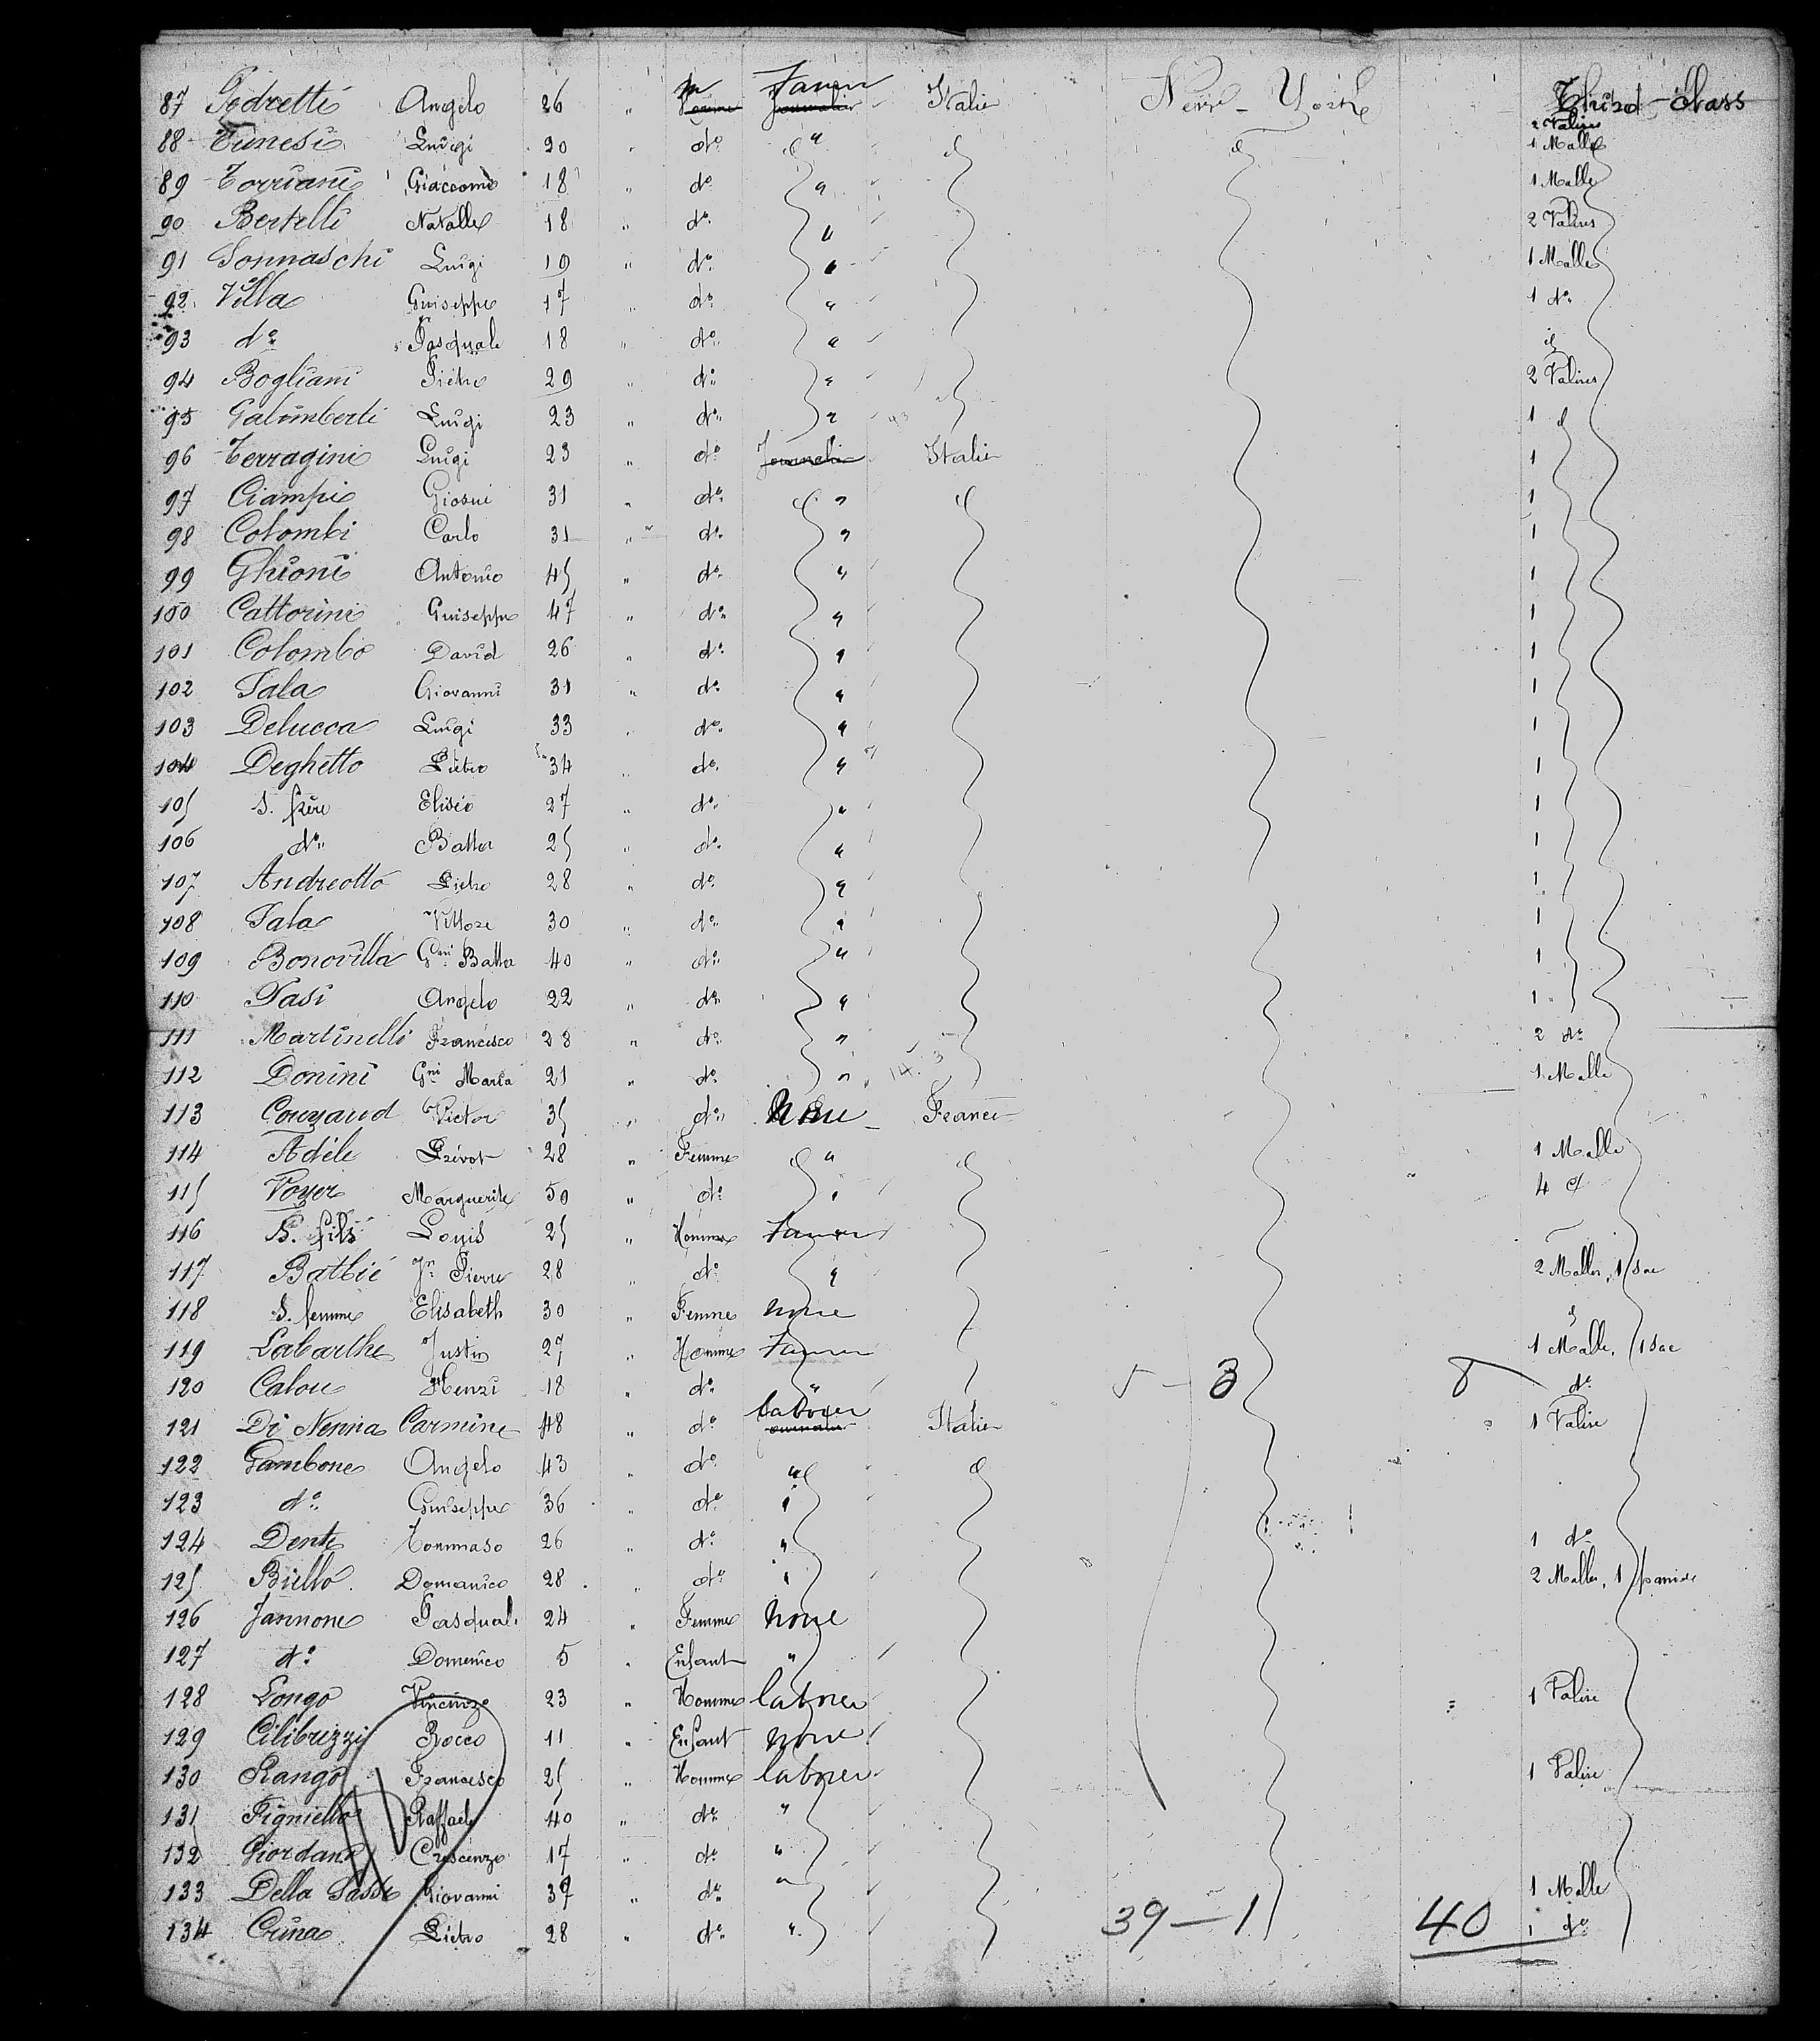 87 Pedretti Angelo 26 " m Homme Farmer Journalier Italie New-York Third-class
2 Valises
88 Tunesi Luigi 20 " do " 1 Malle
89 Torriani Giaccomo 18 " do " 1 Malle
90 Bertelli Natalle 18 " do " 2 Valises
91 Sonnaschi Luigi 19 " do " 1 Malle
92 Villa Guiseppe 17 " do " 1 do
93 do Pasquale 18 " do "
94 Bogliani Pietro 29 " do " 2 Valises
95 Galimberti Luigi 23 " do " 1
96 Terragini Luigi 23 " do Journalier Italie 1
97 Ciampi Giosue 31 " do " 1
98 Colombi Carlo 31 " do " 1
99 Ghioni Antonio 45 " do " 1
100 Cattorini Guiseppe 47 " do " 1
101 Colombo David 26 " do " 1
102 Sala Giovanni 31 " do " 1
103 Delucca Luigi 33 " do " 1
104 Deghetto Pietro 34 " do " 1
105 S. frère Eliséo 27 " do " 1
106 do Batta 25 " do " 1
107 Andreotto Pietro 28 " do " 1
108 Sala Vittore 30 " do " 1
109 Bonovilla Gni Batta 40 " do " 1
110 Pasi Angelo 22 " do " 1
111 Martinelli Francesco 28 " do " 2 do
112 Donini Gni Maria 21 " do " 1 Malle
113 Couzaud Victor 35 " do None France
114 Adèle Prévot 28 " Femme " 1 Malle
115 Voyer Marguerite 50 " do " 4
116 S. fils Louis 25 " Homme Farmer
117 Batbié Jn Pierre 28 " do " 2 Malles, 1 sac
118 S. femme Elisabeth 30 " Femme None
119 Labarthe Justin 27 " Homme Farmer 1 Malle, 1 sac
120 Calou Henri 18 " do " 5 - 3 8 do
121 Di Nenna Carmine 48 " do laborer Journalier Italie 1 Valise
122 Gambone Angelo 43 " do "
123 do Guiseppe 36 " do "
124 Dente Tommaso 26 " do " 1 do
125 Biello Domenico 28 " do " 2 Malles, 1 panier
126 Jannone Pasquale 24 " Femme None
127 do Domenico 5 " Enfant "
128 Longo Vincenzo 23 " Homme laborer 1 Valise
129 Cilibrizzi Rocco 11 " Enfant None
130 Rango Francesco 25 " Homme laborer 1 Valise
131 Pigniello Raffaele 40 " do "
132 Giordano Crescenzo 17 " do "
133 Della Sasso Giovanni 37 " do " 1 Malle
134 Cuna Pietro 28 " do " 39 - 1 40 1 do